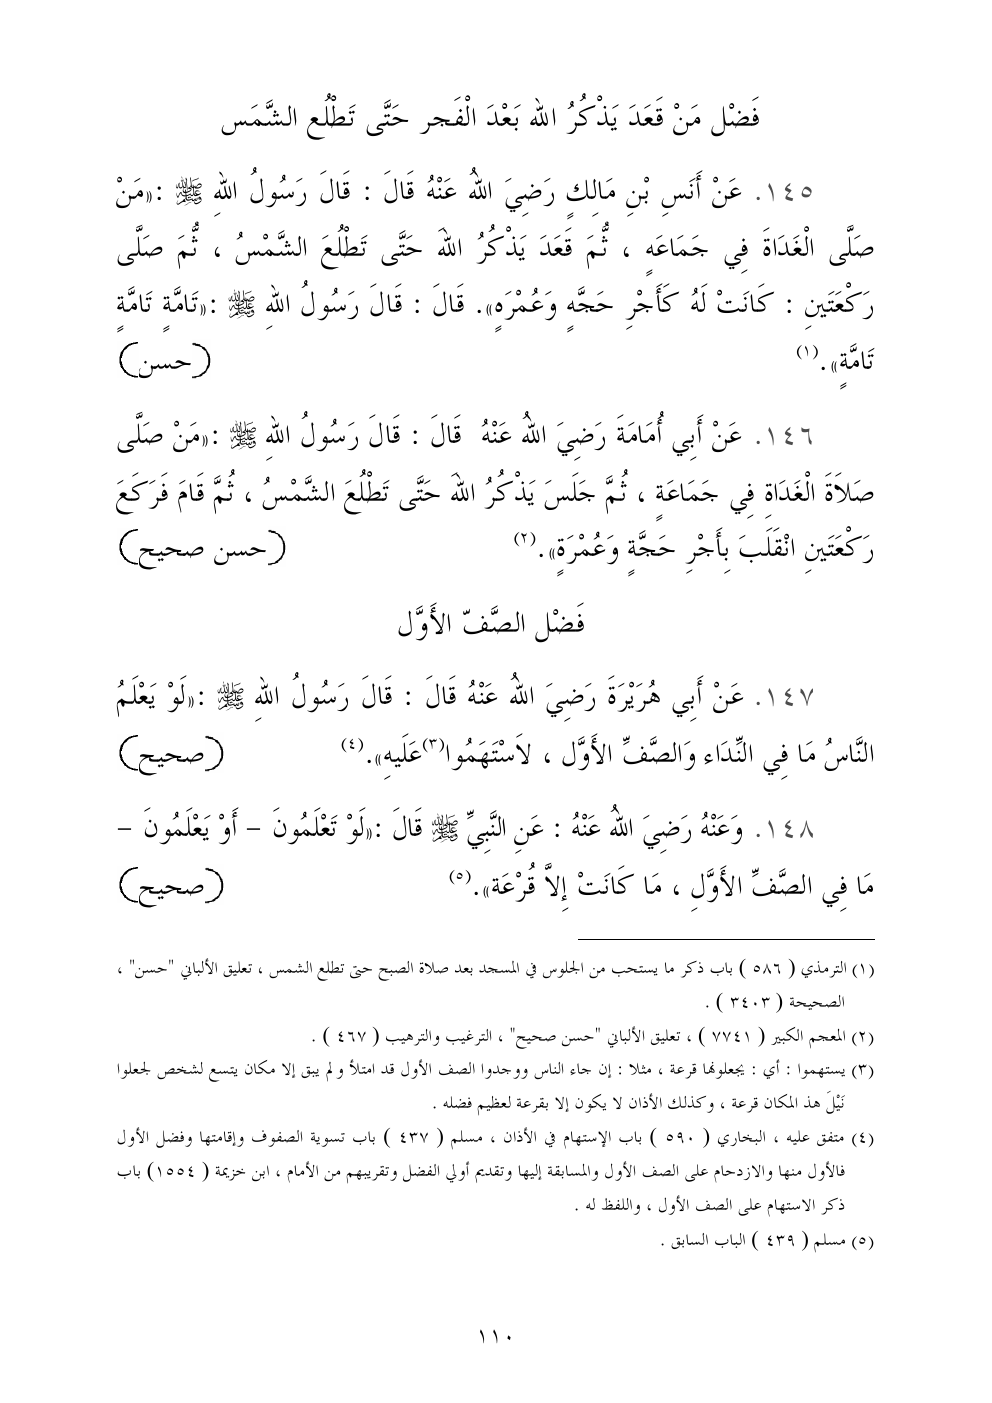 فَضْل مَنْ قَعَدَ يَذْكُرُ الله بَعْدَ الْفَجر حَتَّى تَطْلُع الشَّمَس
١٤٥. عَنْ أَنَسِ بْنِ مَالِكٍ رَضِيَ اللهُ عَنْهُ قَالَ : قَالَ رَسُولُ اللهِ ﷺ :«مَنْ
صَلَّى الْغَدَاةَ فِي جَمَاعَهٍ ، ثُّمَ قَعَدَ يَذْكُرُ اللهَ حَتَّى تَطْلُعَ الشَّمْسُ ، ثُّمَ صَلَّى
رَكْعَتَينِ : كَانَتْ لَهُ كَأَجْرِ حَجَّهٍ وَعُمْرَهٍ». قَالَ : قَالَ رَسُولُ اللهِ ﷺ :«تَامَّةٍ تَامَّةٍ
تَامَّةٍ».(١) (حسن)
١٤٦. عَنْ أَبِي أُمَامَةَ رَضِيَ اللهُ عَنْهُ قَالَ : قَالَ رَسُولُ اللهِ ﷺ :«مَنْ صَلَّى
صَلاَةَ الْغَدَاةِ فِي جَمَاعَةٍ ، ثُمَّ جَلَسَ يَذْكُرُ اللهَ حَتَّى تَطْلُعَ الشَّمْسُ ، ثُمَّ قَامَ فَرَكَعَ
رَكْعَتَينِ انْقَلَبَ بِأَجْرِ حَجَّةٍ وَعُمْرَةٍ».(٢) (حسن صحيح)
فَضْل الصَّفّ الأَوَّل
١٤٧. عَنْ أَبِي هُرَيْرَةَ رَضِيَ اللهُ عَنْهُ قَالَ : قَالَ رَسُولُ اللهِ ﷺ :«لَوْ يَعْلَمُ
النَّاسُ مَا فِي النِّدَاء وَالصَّفِّ الأَوَّل ، لاَسْتَهَمُوا(٣)عَلَيهِ».(٤) (صحيح)
١٤٨. وَعَنْهُ رَضِيَ اللهُ عَنْهُ : عَنِ النَّبِيِّ ﷺ قَالَ :«لَوْ تَعْلَمُونَ – أَوْ يَعْلَمُونَ –
مَا فِي الصَّفِّ الأَوَّلِ ، مَا كَانَتْ إِلاَّ قُرْعَة».(٥) (صحيح)
(١) الترمذي ( ٥٨٦ ) باب ذكر ما يستحب من الجلوس في المسجد بعد صلاة الصبح حتى تطلع الشمس ، تعليق الألباني "حسن" ،
الصحيحة ( ٣٤٠٣ ) .
(٢) المعجم الكبير ( ٧٧٤١ ) ، تعليق الألباني "حسن صحيح" ، الترغيب والترهيب ( ٤٦٧ ) .
(٣) يستهموا : أي : يجعلونها قرعة ، مثلا : إن جاء الناس ووجدوا الصف الأول قد امتلأ ولم يبق إلا مكان يتسع لشخص لجعلوا
نَيْلَ هذ المكان قرعة ، وكذلك الأذان لا يكون إلا بقرعة لعظيم فضله .
(٤) متفق عليه ، البخاري ( ٥٩٠ ) باب الإستهام في الأذان ، مسلم ( ٤٣٧ ) باب تسوية الصفوف وإقامتها وفضل الأول
فالأول منها والازدحام على الصف الأول والمسابقة إليها وتقديم أولي الفضل وتقريبهم من الأمام ، ابن خزيمة ( ١٥٥٤) باب
ذكر الاستهام على الصف الأول ، واللفظ له .
(٥) مسلم ( ٤٣٩ ) الباب السابق .
١١٠